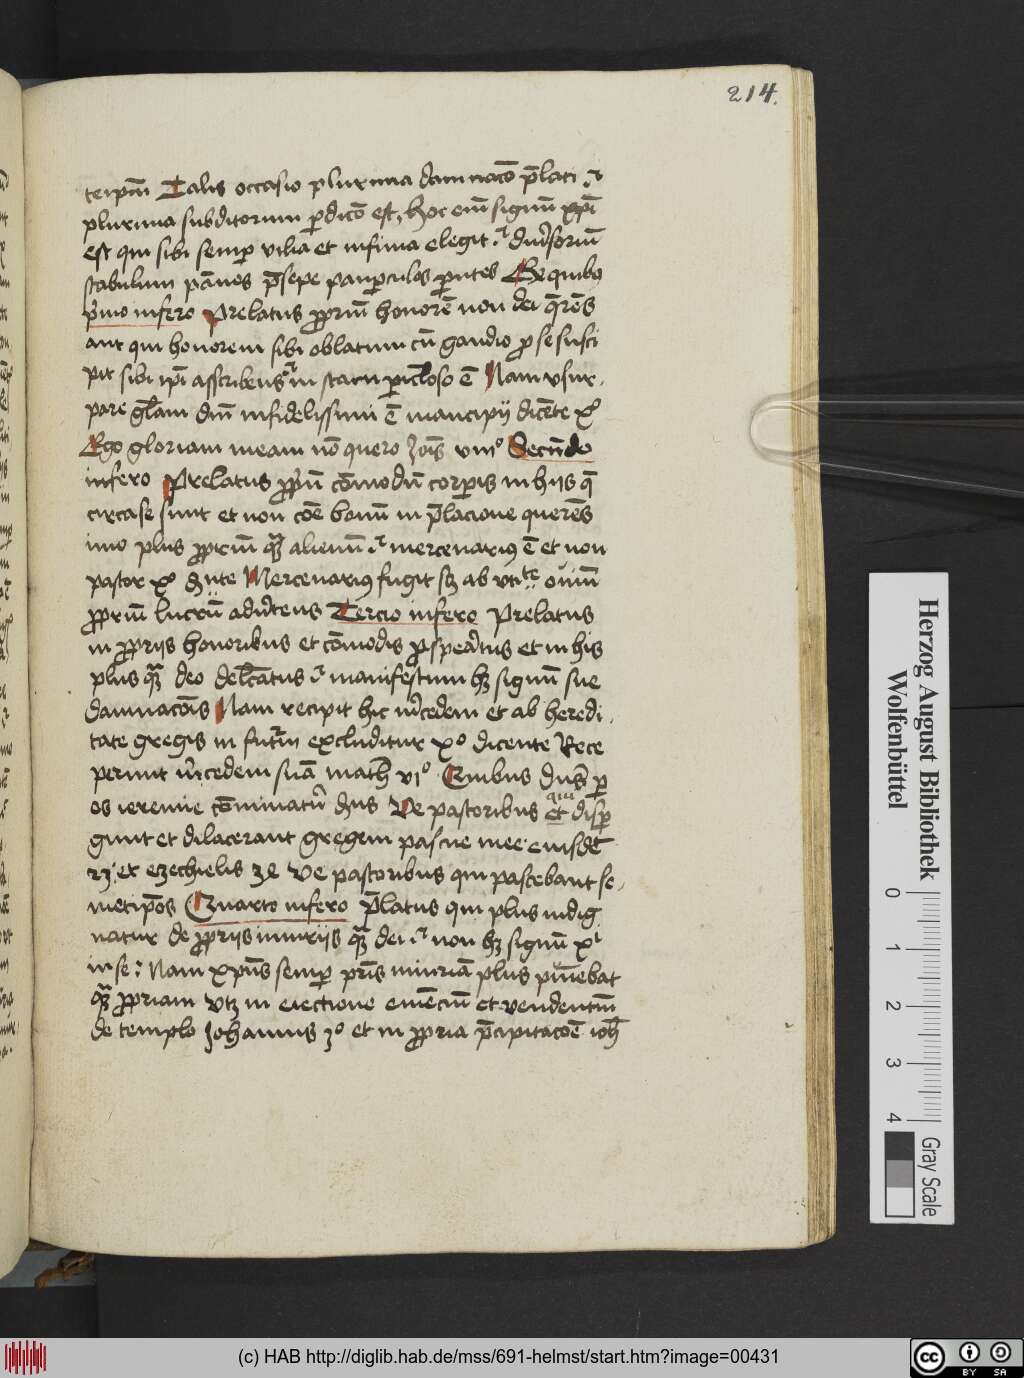 214.
teipm̄ Talis occasio plurima damnacō p̄lati ⁊
plurima subditorum p̱dicō est, hoc em̄ signū xp̄i
est qui sibi semp̱ vilia et infima elegit ⁊ diu̓soriū
stabulum pānos p̄sepe paup̱culos p̱ntes Ex quibꝰ
p̓mo infero Prelatus ꝓpriū honorē non dei q̄rēs
aut qui honorem sibi oblatum cū gaudio ꝓ se susci
pit sibi ip̄i asscribens in statu piclōso ē Nam vsur
pare gl̄iam dn̄i infidelissimi ē mancipij dicēte xº
Ego gloriam meam nō quero Joīs viijº Secūdo
infero Prelatus ꝓpriū cōmodū corp̱is in hijs q̄
circa se sunt et non cōe bonū in p̄lacione querēs
imo plus ꝓpriū qͣꝫ alienū ⁊ mercenariꝰ ē et non
pastor xº dn̄te Mercenariꝰ fugit sꝫ ab vtiᵗᵉ ouiū
ꝓpriū lucrū adu̓tens Tercio infero Prelatus
in ꝓprijs honoribus et cōmodis ꝓspeatus et in his
plus qͣꝫ deo delc̄atus ⁊ manifestum hꝫ signū sue
damnacōis Nam recipit hic m̓cedem et ab heredi
tate gregis in futur̄m excluditur xº dicente Rece
perunt m̓cedem suā math̄ vjº Quibus dn̄s p̱
os ieremie cōminatur̄ dn̄s Ve pastoribus qui et disp̱
gunt et dilacerant gregem pascue mee eiusdē
23 et ezechielis 34 Ve pastoribus qui pascebant se
metip̄os Quarto infero p̄latus qui plus indig
natur de ꝓprijs iniurijs qͣꝫ dei ⁊ non hꝫ signū xⁱ
in se : Nam xp̄us semp̱ pr̄is iniuriā plus pūiebat
qͣꝫ ꝓpriam vtꝫ in eiectione emēciū et vendentiū
de templo Johannis 3º et in ꝓpria p̄cipitacōe ioh̄
Herzog August Bibliothek
Wolfenbüttel
0 1 2 3 4
Gray Scale
(c) HAB http://diglib.hab.de/mss/691-helmst/start.htm?image=00431
cc BY SA